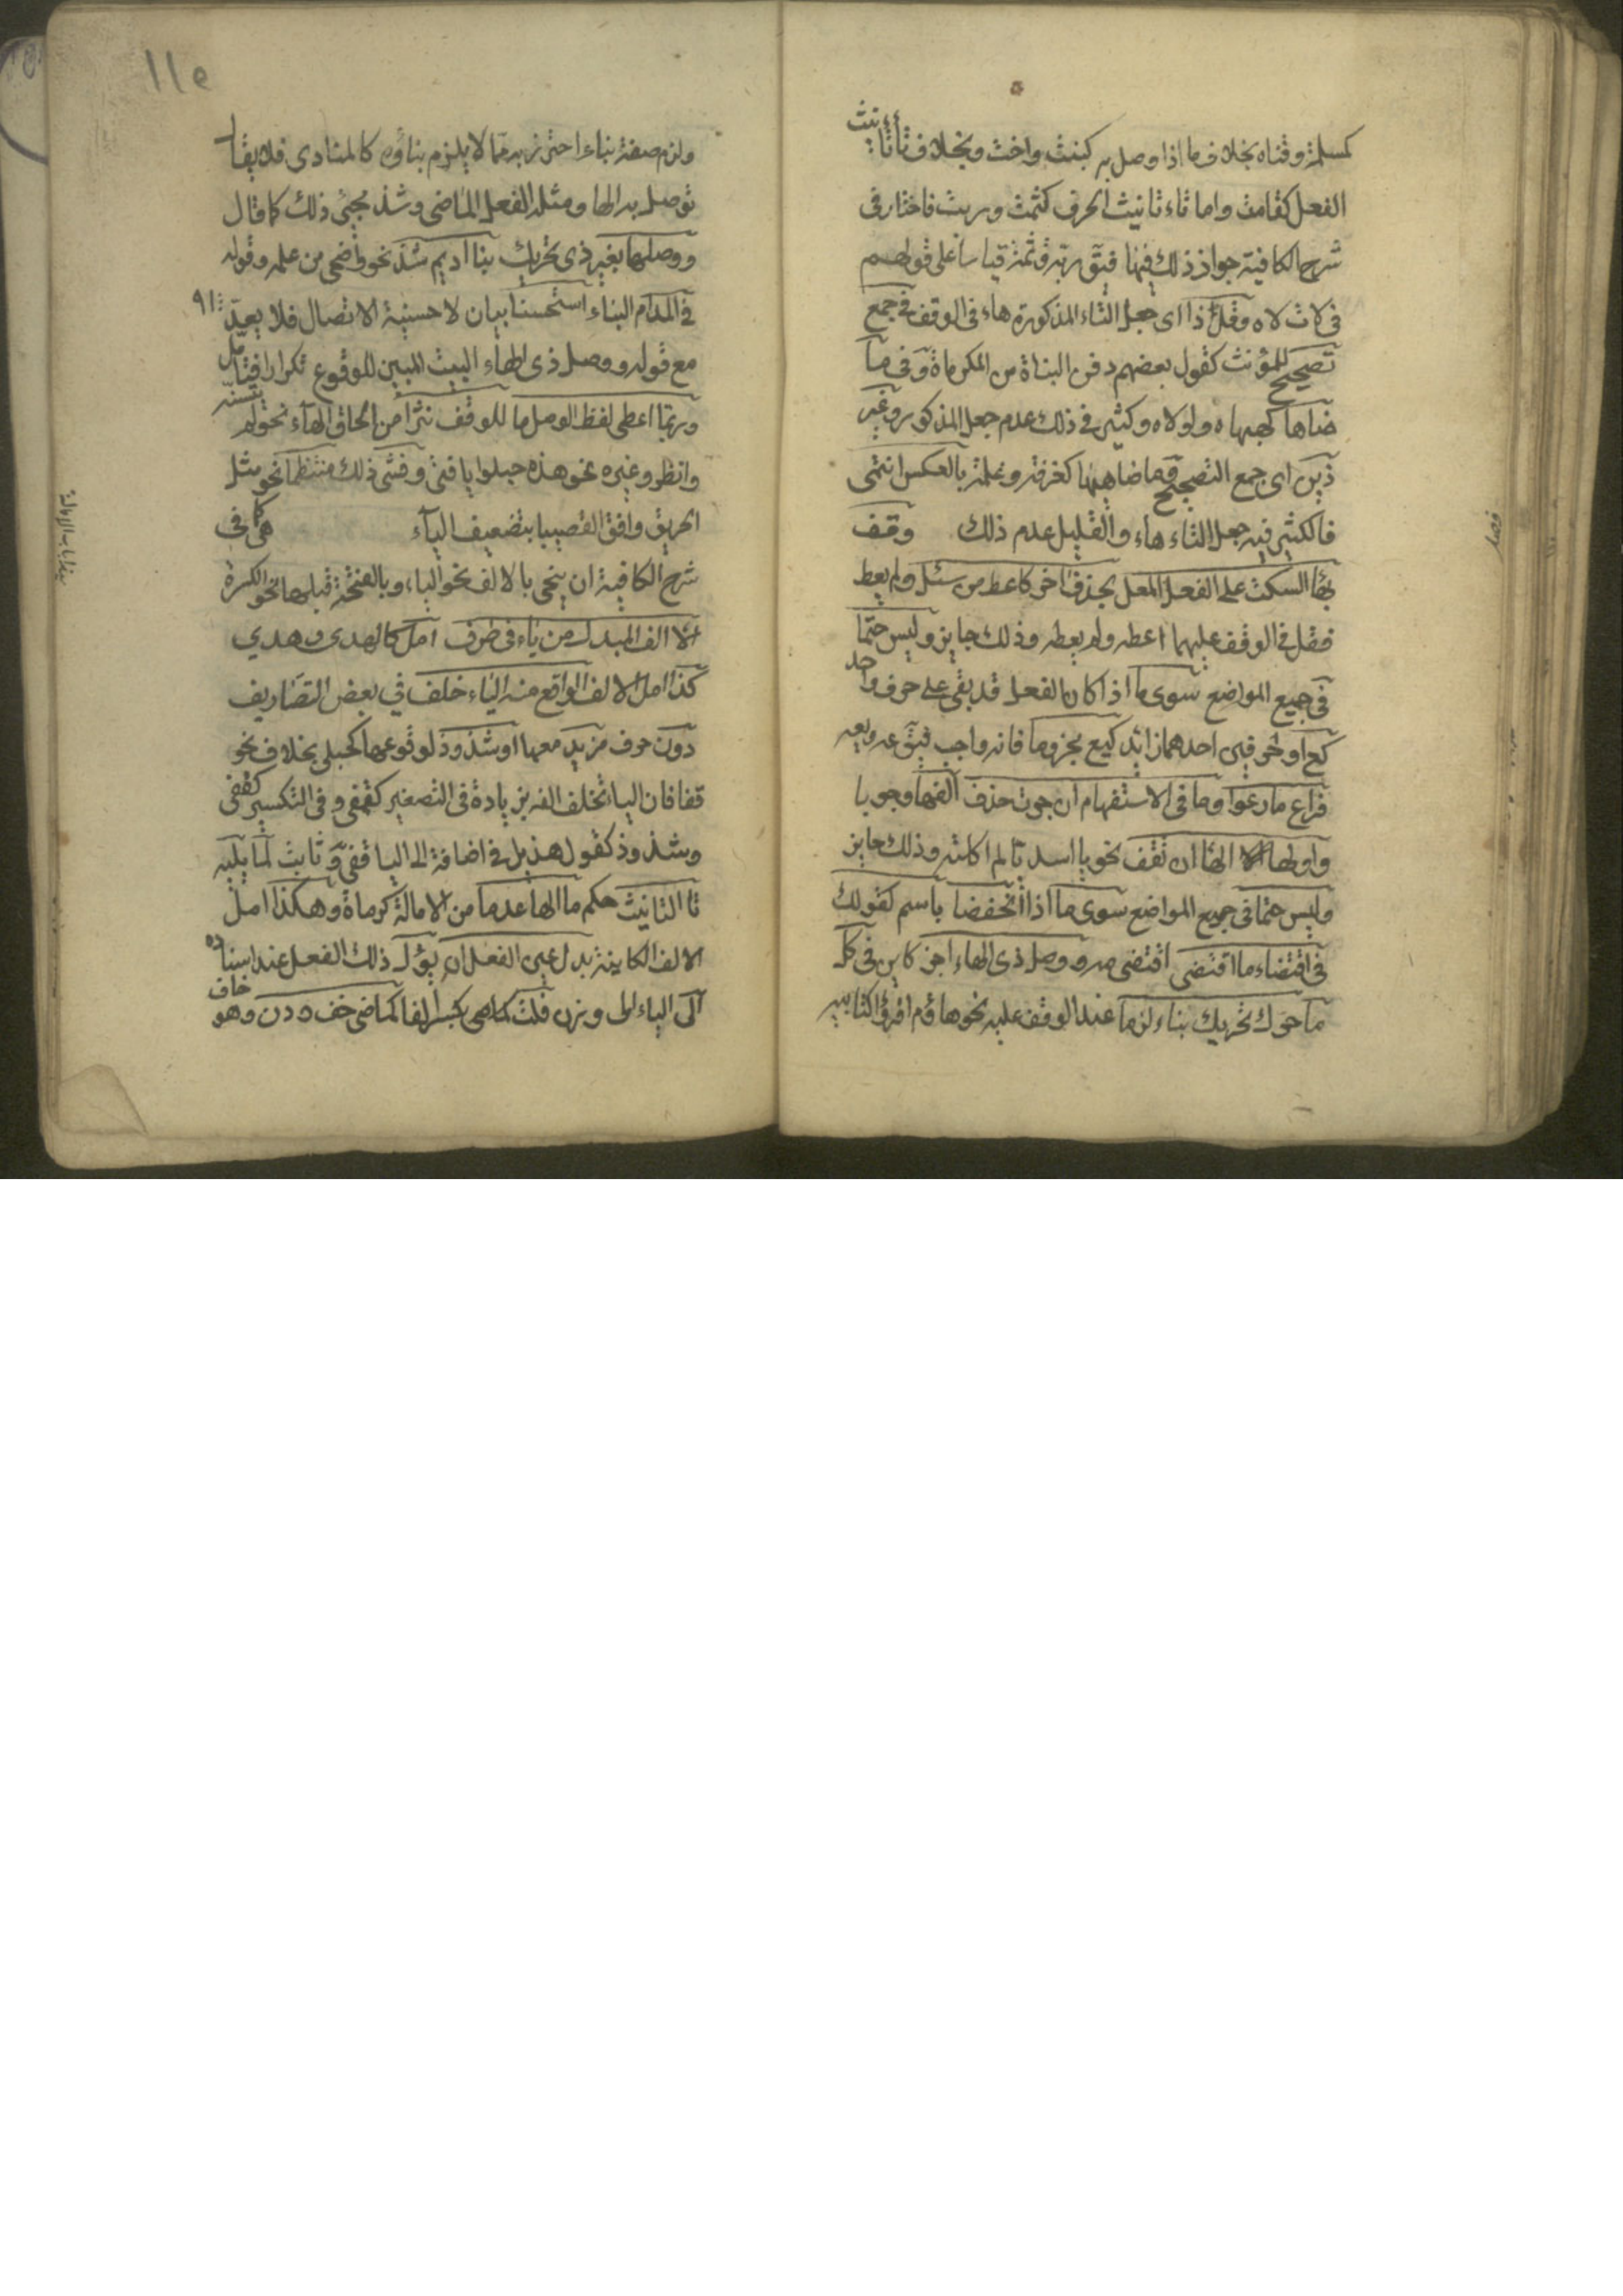 كمسلمة وفتاه بخلاف ما اذا وصل به كبنت واخت وبخلاف تاء تانيث
الفعل كقامت واما تاء تانيث الحرف كثمت وربت فاختار في
شرح الكافية جواز ذلك فيها فيق ربه وثمه قياسا على قولهم
في لات لاه وقل ذا اى جعل التاء المذكورة هاء فى الوقف في جمع
تصحيح للمؤنث كقول بعضهم دفن البناة من المكرماة وفى ما
ضاها كهيهاه ولولاه وكثير في ذلك عدم جعل المذكور وغير
ذين اى جمع التصحيح وما ضاهيها كغرفة وغلمة بالعكس انتمى
فالكثير فيه جعل التاء هاء والقليل عدم ذلك وقف
بها السكت على الفعل المعل بحذف اخر كاعط من سئل ولم يعط
فقل فى الوقف عليهما اعطه ولم يعطه وذلك جايز وليس حتما
فى جميع المواضع سوى ما اذا كان الفعل قد بقى على حرف واحد
كع او حرفين احدهما زائد كيع مجزوما فانه واجب فيق عه ويعه
فراع ما رعوا وما فى الاستفهام ان جرت حذف الفها وجوبا
واولها الها ان تقف نحو يا اسديا لم اكلته وذلك جايز
وليس حتما فى جميع المواضع سوى ما اذا انخفضا باسم كقولك
فى اقتضاء ما اقتضى اقتضى مه ووصل ذى الهاء اجز كاين فى كل
ما حرك تحريك بناء لزما عند الوقف عليه نحو هاؤم اقرؤا كتابيه
١١٥
ولزم صفة بناء احترز به مما لا يلزم بناؤه كالمنادى فلا يقا
توصل به الها ومثله الفعل الماضى وشذ مجئ ذلك كما قال
ووصلها بغير ذى تحريك بنا اديم شذ نحو واضحى من علمه وقوله
في المدام البناء استحسنا بيان لاحسنية الاتصال فلا يعد
مع قوله ووصل ذى الهاء البيت المبين للوقوع تكرارا فتامل
وربما اعطى لفظ الوصل ما للوقف نثرا من الحاق الهاء نحو لم يتسنه
وانظر وغيره نحو هذه حبلوا يا فتى وفشى ذلك منتظما نحو مثل
الحريق وافق القصبا بتضعيف الباء هى كما فى
شرح الكافية ان ينحى بالالف نحو الياء وبالفتحة قبلها نحو الكسرة
الالف المبدل من ياء فى طرف امل كالهدى وهدي
كذا امل الالف الواقع منه الياء خلف في بعض التصاريف
دون حرف مزيد معها او شذوذ لوقوعها كحبلى بخلاف نحو
قفا فان الياء تخلف الفه بزيادة فى التصغير كقفى وفى التكسير كقفى
وشذوذ كقول هذيل في اضافة الى اليا قفى وثابت لما يليه
تا التانيث حكم ما الها عدما من الامالة كرماة وهكذا امل
الالف الكاينة بدل عين الفعل ان يؤل ذلك الفعل عند اسناده
الى الياء الى وزن فلت كما هى بكسر الفا كماضى خف ودن وهو خاف